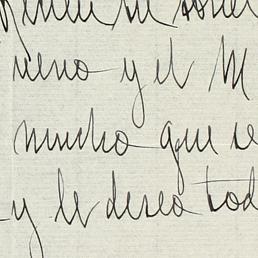 ueno y el M
mucho que se
y le deseo tod